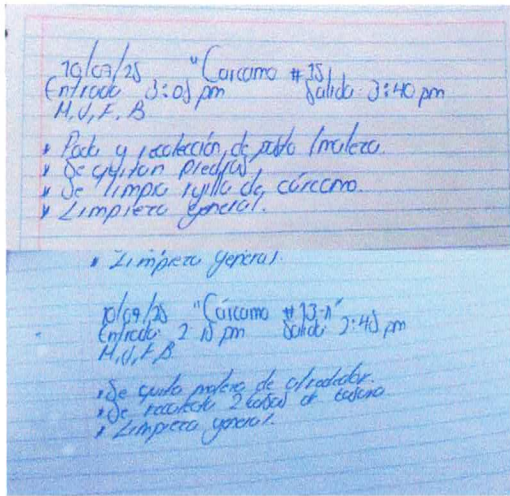 10/09/25 "Cárcamo #15
Entrada 3:05 pm Salida: 3:40 pm
M, J, F, B
* Poda y recolección, de pasto/maleza.
* Se quitan piedras.
* Se limpia rejilla de cárcamo.
* Limpieza general.
* Limpieza general.
10/09/25 "Cárcamo #13-A"
Entrada: 2 15 pm Salida: 2:45 pm
M, J, F, B
* Se quita maleza de alrededor.
* Se recolecta 2 bolsas de basura
* Limpieza general.